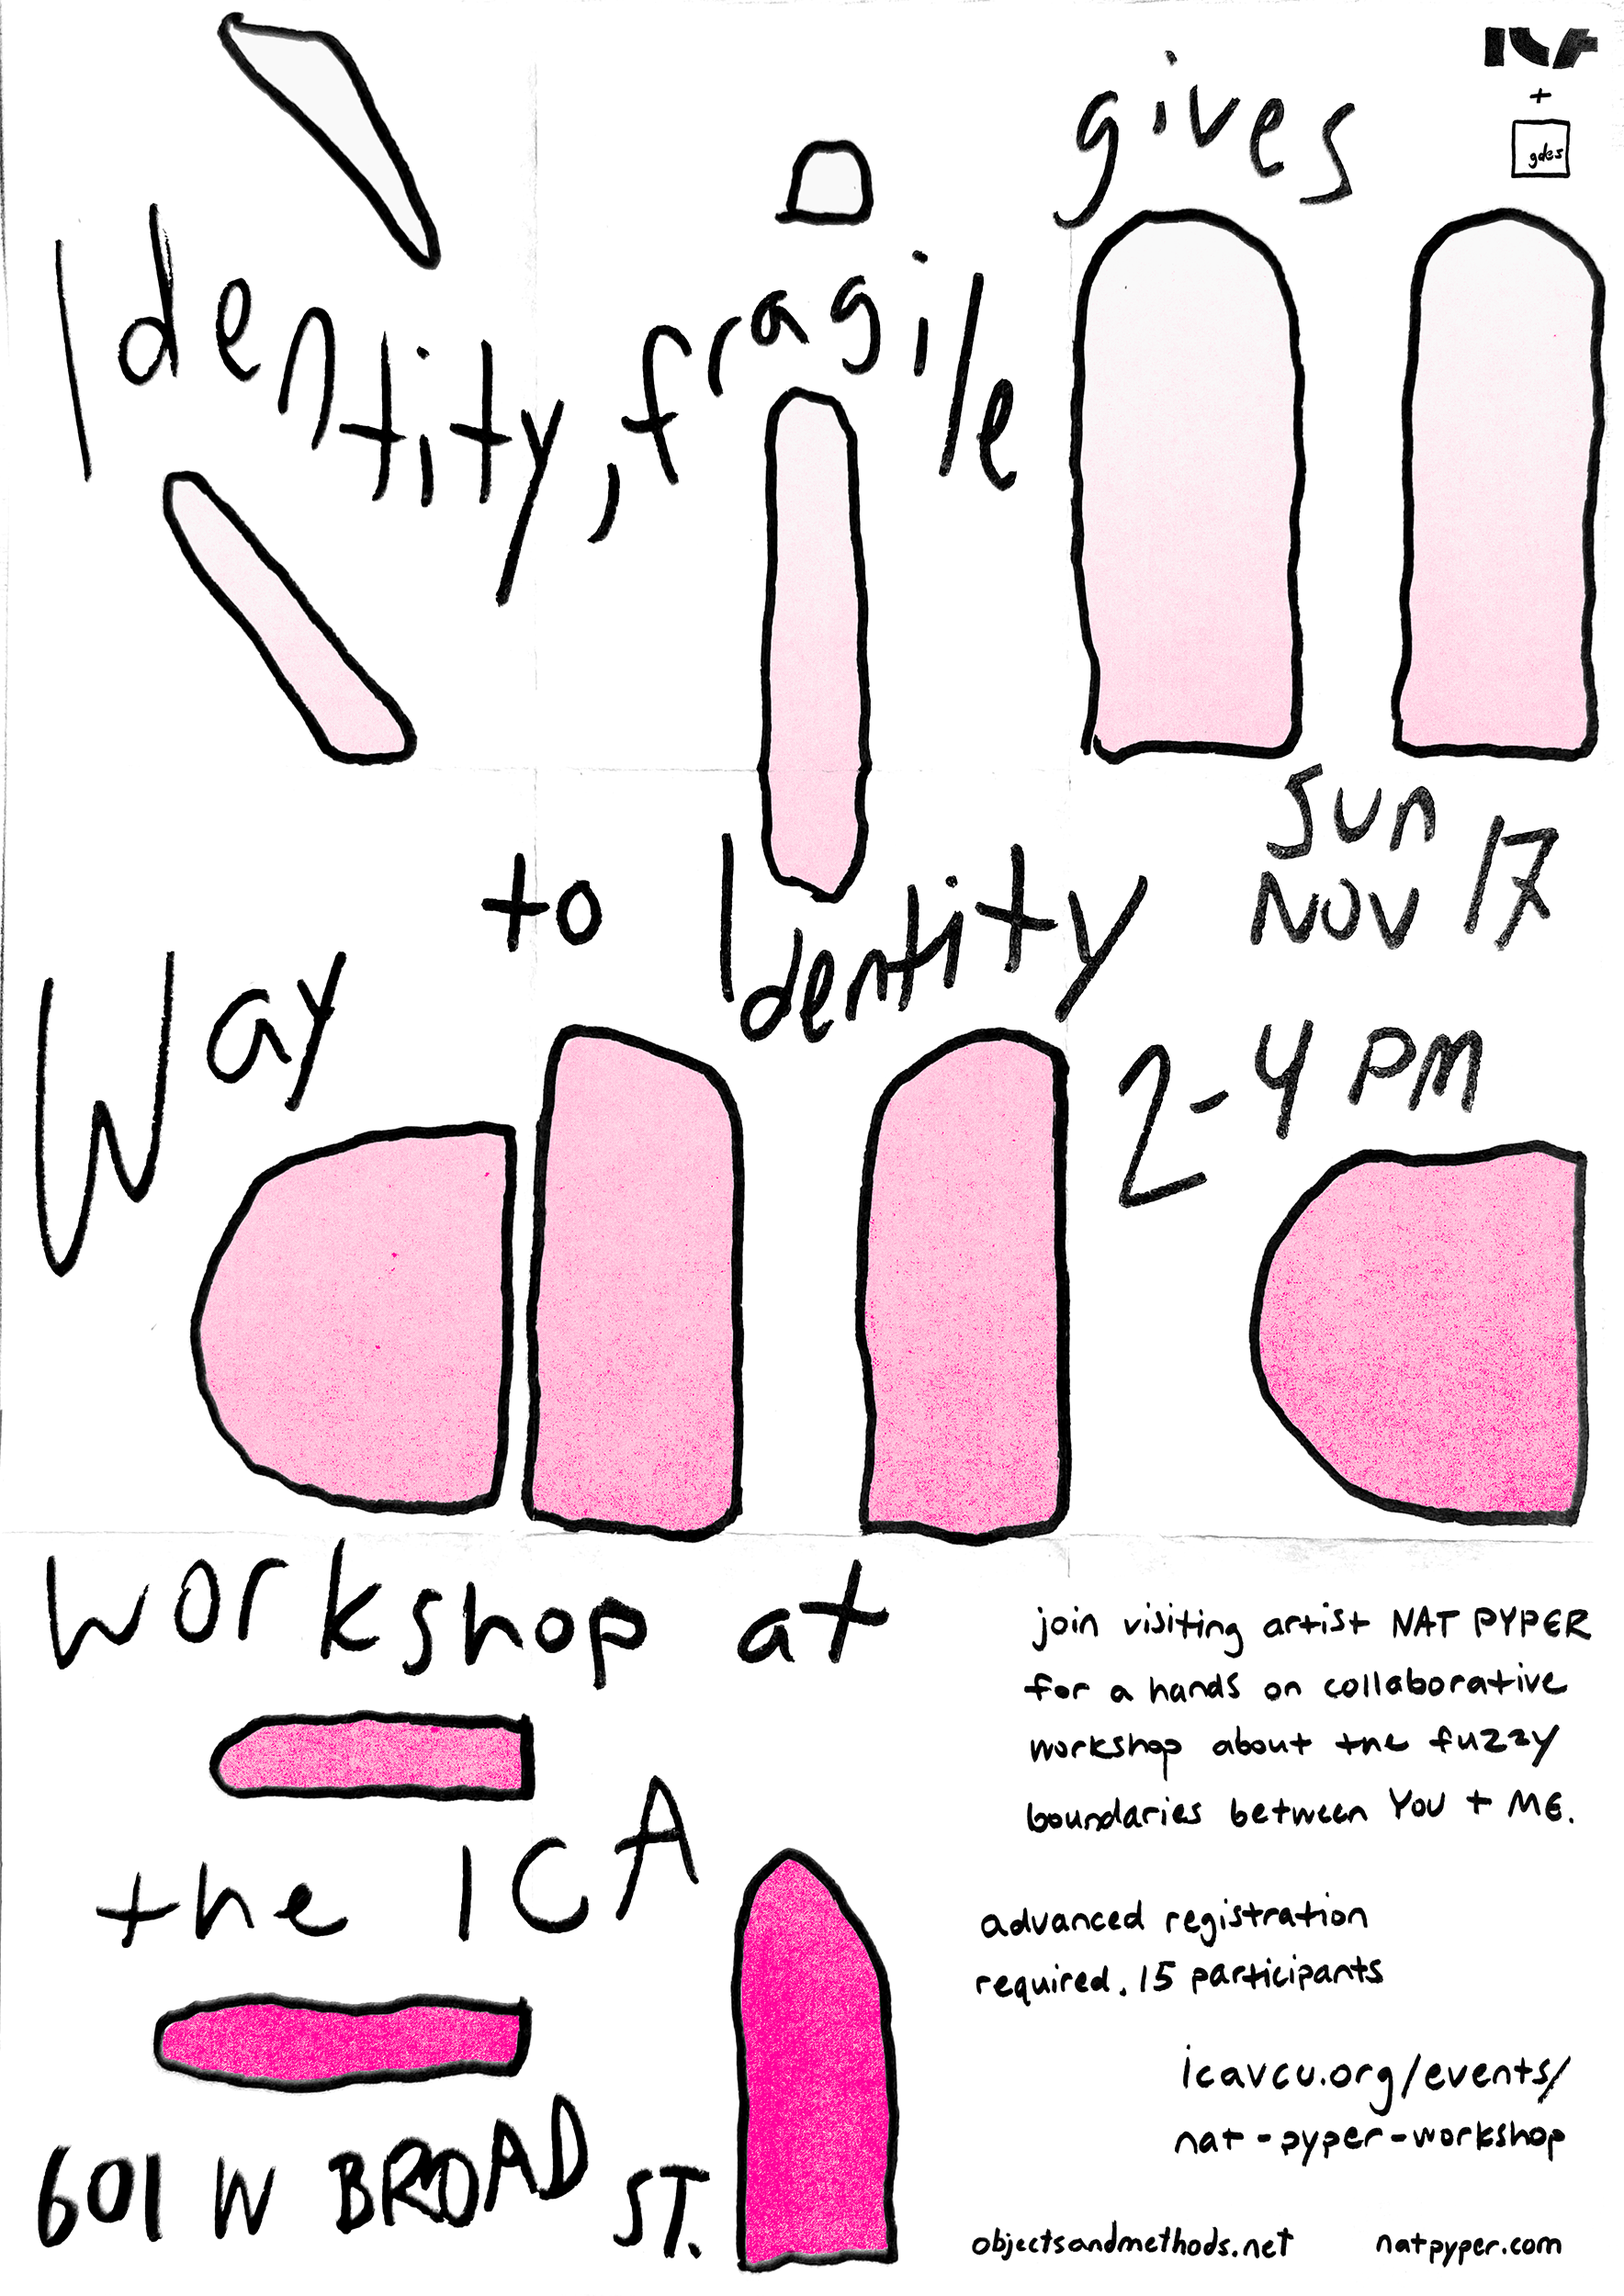 ICA
+
gdes
gives
Identity, fragile
Way to Identity
SUN
NOV 17
2-4 PM
workshop at
the ICA
601 W BROAD ST.
join visiting artist NAT PYPER
for a hands on collaborative
workshop about the fuzzy
boundaries between YOU + ME.
advanced registration
required. 15 participants
icavcu.org/events/
nat-pyper-workshop
objectsandmethods.net
natpyper.com